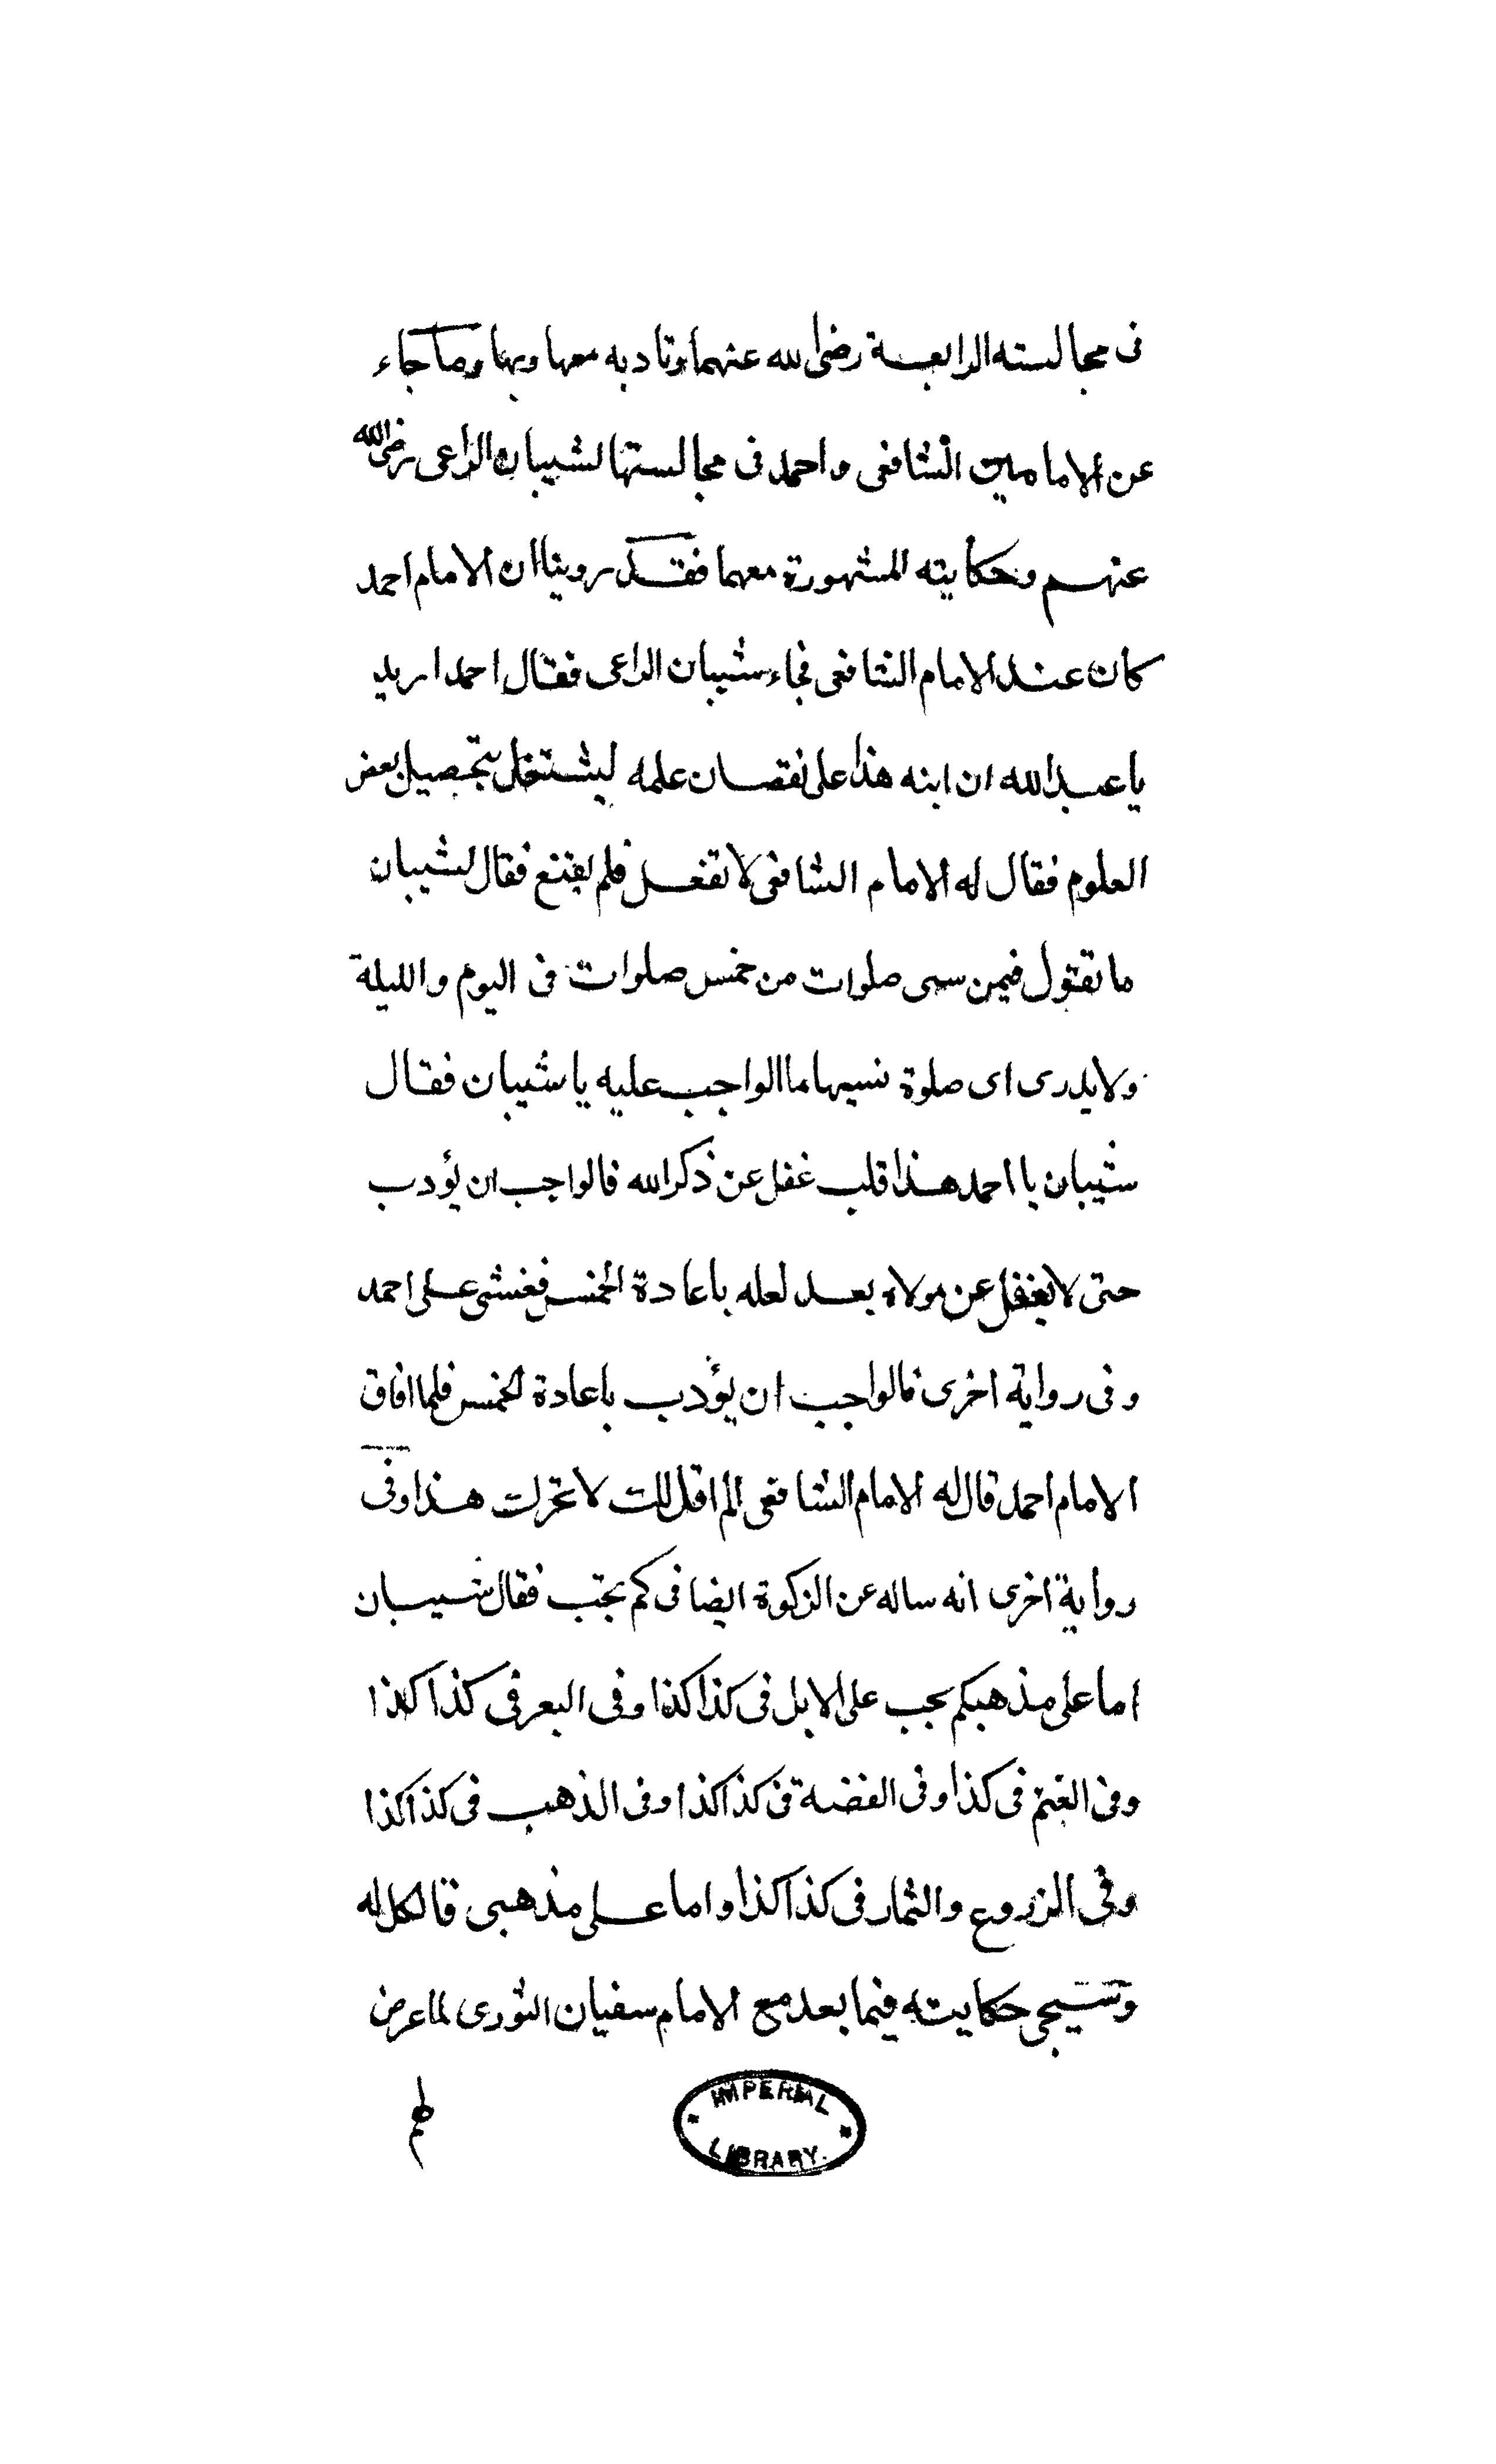 فى مجالسته الرابعة رضى الله عنهما وتادبه معها وبها وما جاء
عن الامامين الشافعى واحمد فى مجالستها لشيبان الراعى رضى الله
عنهم وحكايته المشهورة معهما فقد روينا ان الامام احمد
كان عند الامام الشافعى فجاء شيبان الراعى فقال احمد اريد
يا عبد الله ان ابنه هذا على نقصان علمه ليشتغل بتحصيل بعض
العلوم فقال له الامام الشافعى لا تفعل فلم يقنع فقال لشيبان
ما تقول فيمن سهى صلوات من خمس صلوات فى اليوم والليلة
ولا يدرى اى صلوة نسيها ما الواجب عليه يا شيبان فقال
شيبان يا احمد هذا قلب غفل عن ذكر الله فالواجب ان يؤدب
حتى لا يغفل عن مولاه بعد لعله باعادة الخمس فغشى على احمد
وفى رواية اخرى فالواجب ان يؤدب باعادة الخمس فلما افاق
الامام احمد قال له الامام الشافعى الم اقل لك لا تحرك هذا وفى
رواية اخرى انه ساله عن الزكوة ايضا فى كم تجب فقال شيبان
اما على مذهبكم يجب على الابل فى كذا كذا وفى البعر فى كذا كذا
وفى الغنم فى كذا وفى الفضة فى كذا كذا وفى الذهب فى كذا كذا
وفى الزروع والثمار فى كذا كذا واما على مذهبى فالكل له
وسيجى حكايته فيما بعد مع الامام سفيان الثورى لما عرض
لهم
IMPERIAL
LIBRARY.